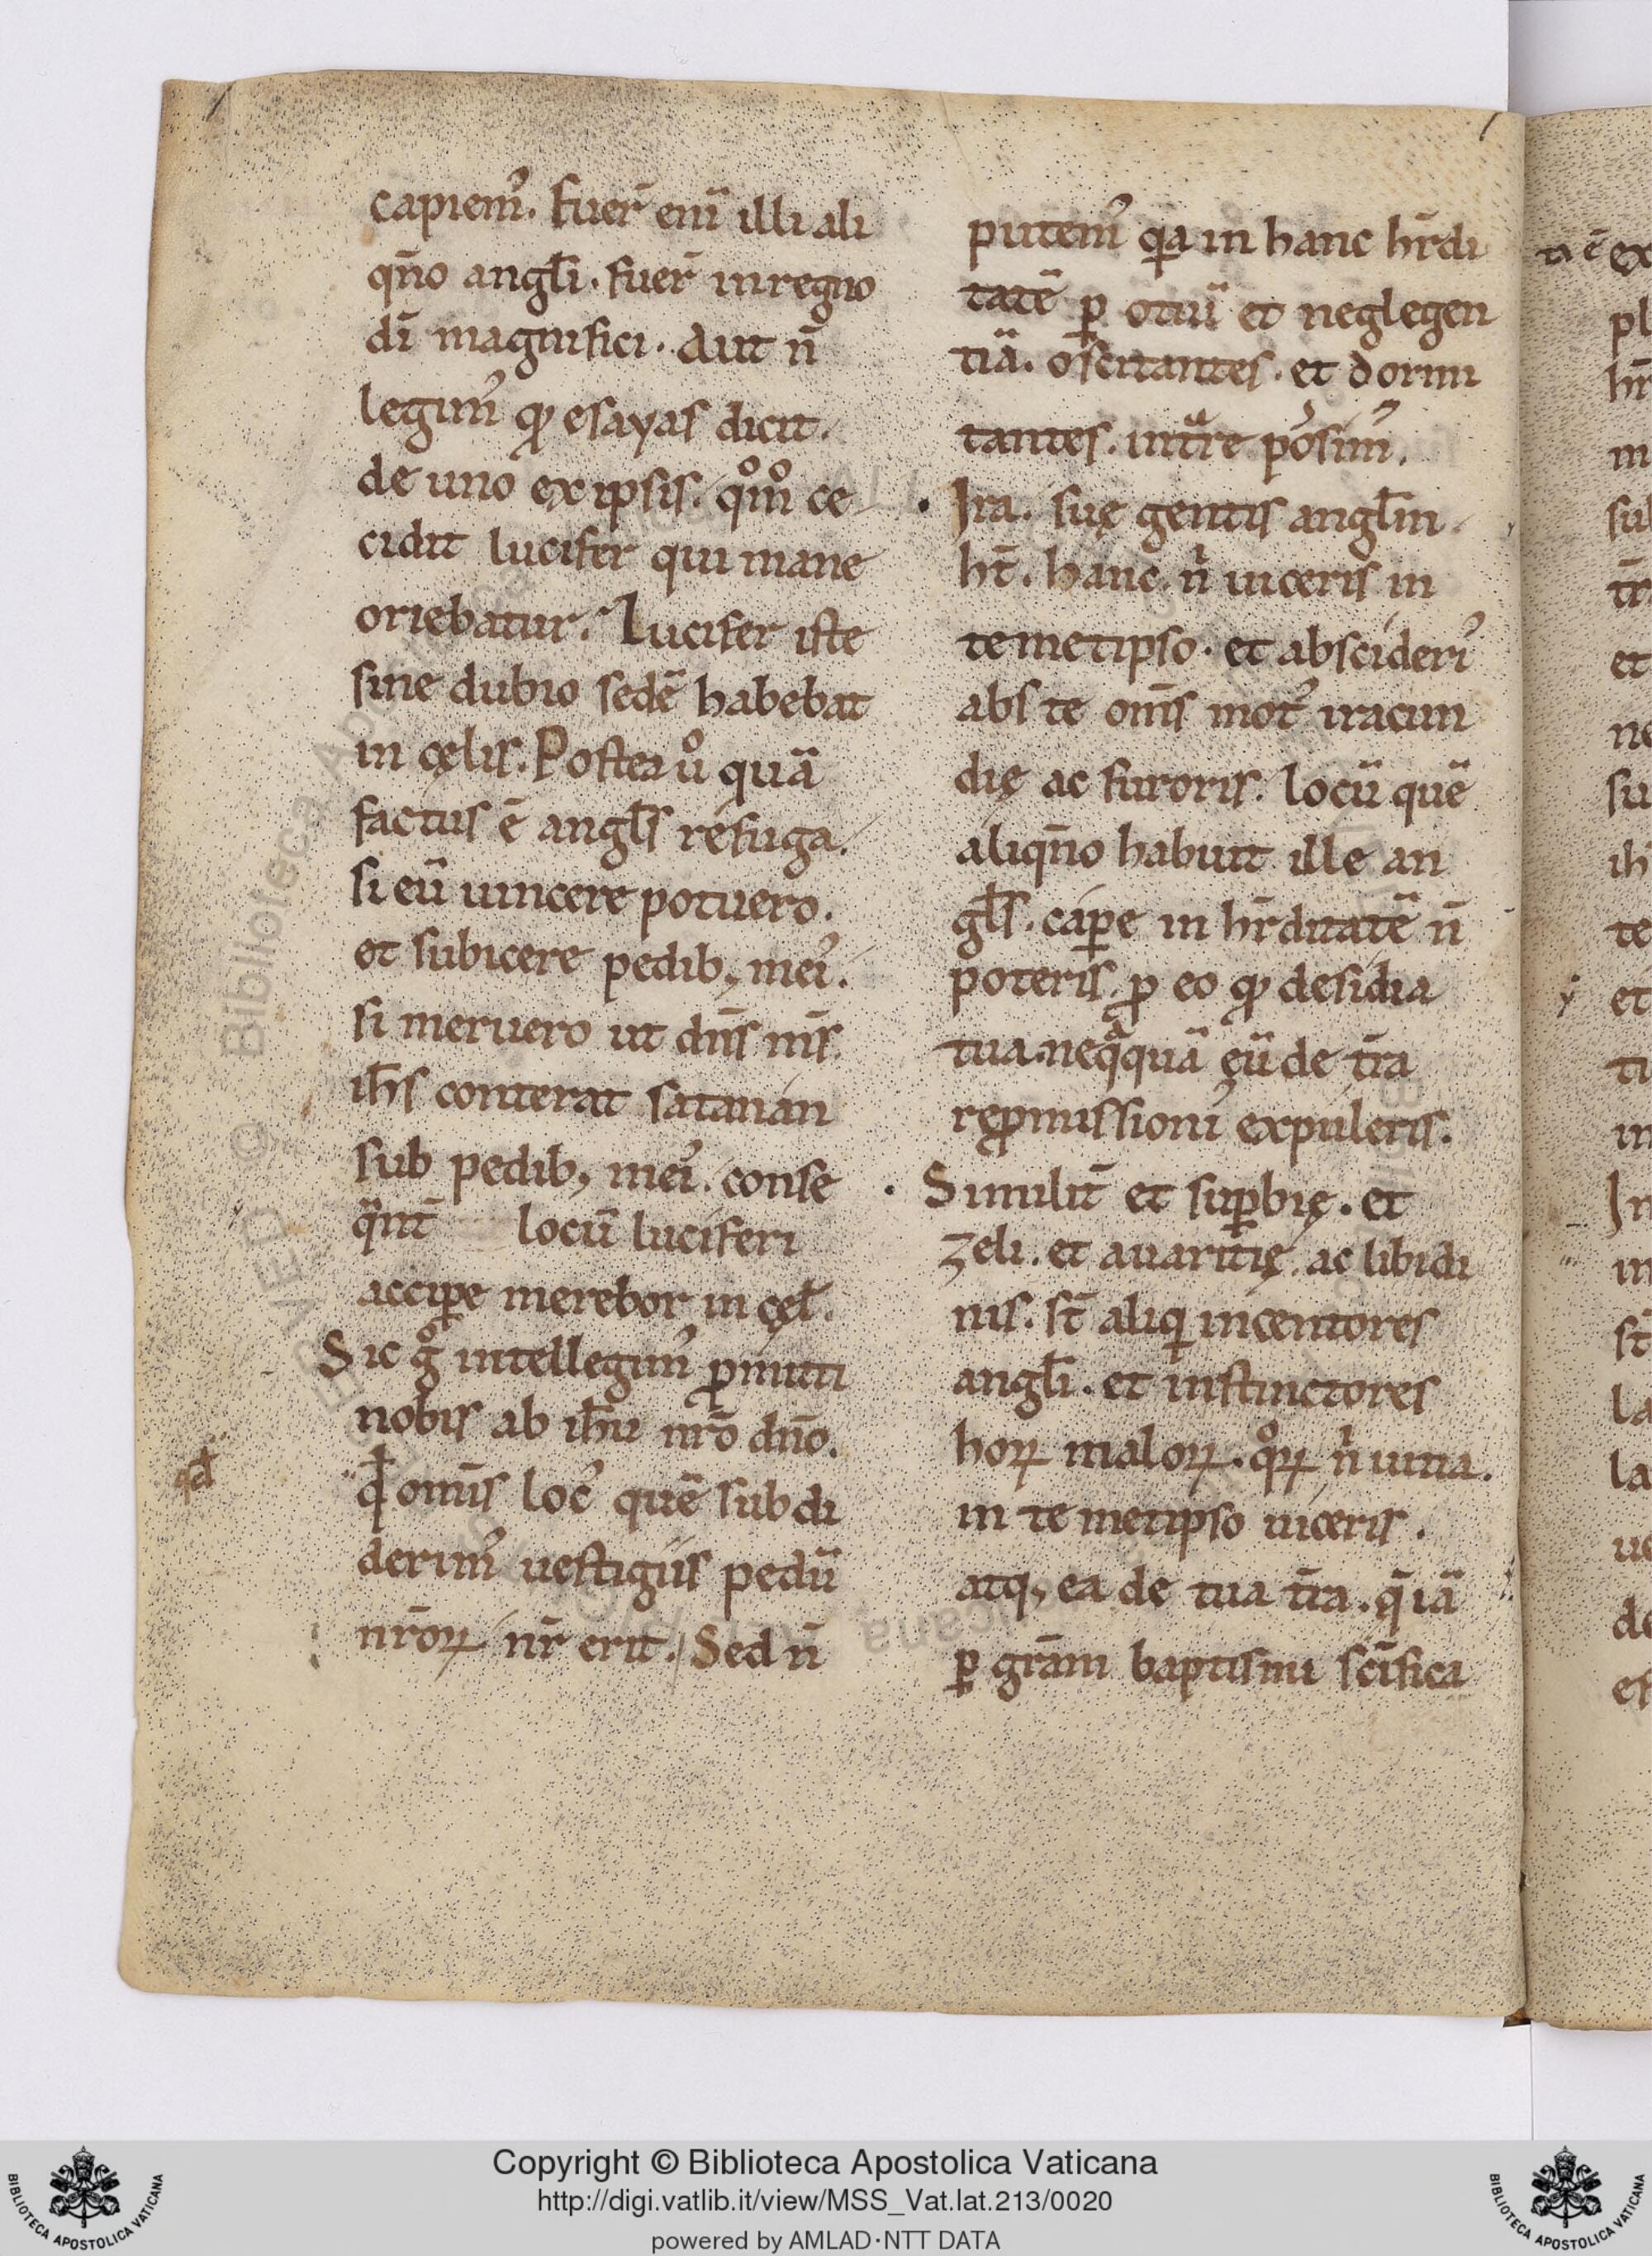 capiem᾿. fuer̄ eni̅ illi ali
qn̄o angl̄i. fuer̄ in regno
di̅ magnifici. Aut n̄
legim᾿ qđ esayas dicit.
de uno ex ipsis. qͦmͦ ce
cidit lucifer qui mane
oriebatur. Lucifer iste
sine dubio sede̅ habebat
in cęlis. Postea uͦ qua̅
factus e̅ angl̄s refuga.
si eu̅ uincere potuero.
et subicere pedib; mei᾿.
si meruero ut dn̄s mi̅s.
ih̄s conterat satanan
sub pedib; mei᾿. conse
qͣnt̄ locu̅ luciferi
accip̲e merebor in cęl̄.
Sic gͦ intellegim᾿ ꝓmitti
nobis ab ih̄u nr̄o dn̄o.
qđ
qđ om̄is loc᾿ que̅ sub di
derim᾿ uestigiis pedu̅
nr̄oꝝ nr̄ erit. Sed n̄
putem᾿ qͣ in hanc hr̄di
tate̅ ꝑ otiu̅ et neglegen
tia̅. oscitantes. et dormi
tantes. intͣre pos᾿sim᾿.
Ira. suę gentis angl̄m.
ht̄. hanc. nͥ uiceris in
temetipso. et abscideri᾿
abs te om̄s mot᾿ iracun
dię ac furoris. locu̅ que̅
aliqn̄o habuit ille an
gl̄s. cap̲e in hr̄ditate̅ n̄
poteris. ꝓ eo qđ desidia
tua. neqͣqua̅ eu̅ de tr̄a
reꝓmissioni᾿ expuleris.
Similit̄ et suꝑbię. et
zeli. et auaritię. ac libidi
nis. st̄ aliqͥ incentores
angl̄i. et instinctores
hoꝝ maloꝝ. qͦꝝ nͥ uitia.
in temetipso uiceris.
atq; ea de tua tr̄a. q̄ ia̅
ꝑ gra̅m baptismi sci̅fica
ta e̅
Copyright © Biblioteca Apostolica Vaticana
http://digi.vatlib.it/view/MSS_Vat.lat.213/0020
powered by AMLAD·NTT DATA
BIBLIOTECA APOSTOLICA VATICANA
BIBLIOTECA APOSTOLICA VATICANA